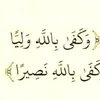 ﴿وَكَفَىٰ بِاللَّهِ وَلِيًّا
كَفَىٰ بِاللَّهِ نَصِيرًا﴾